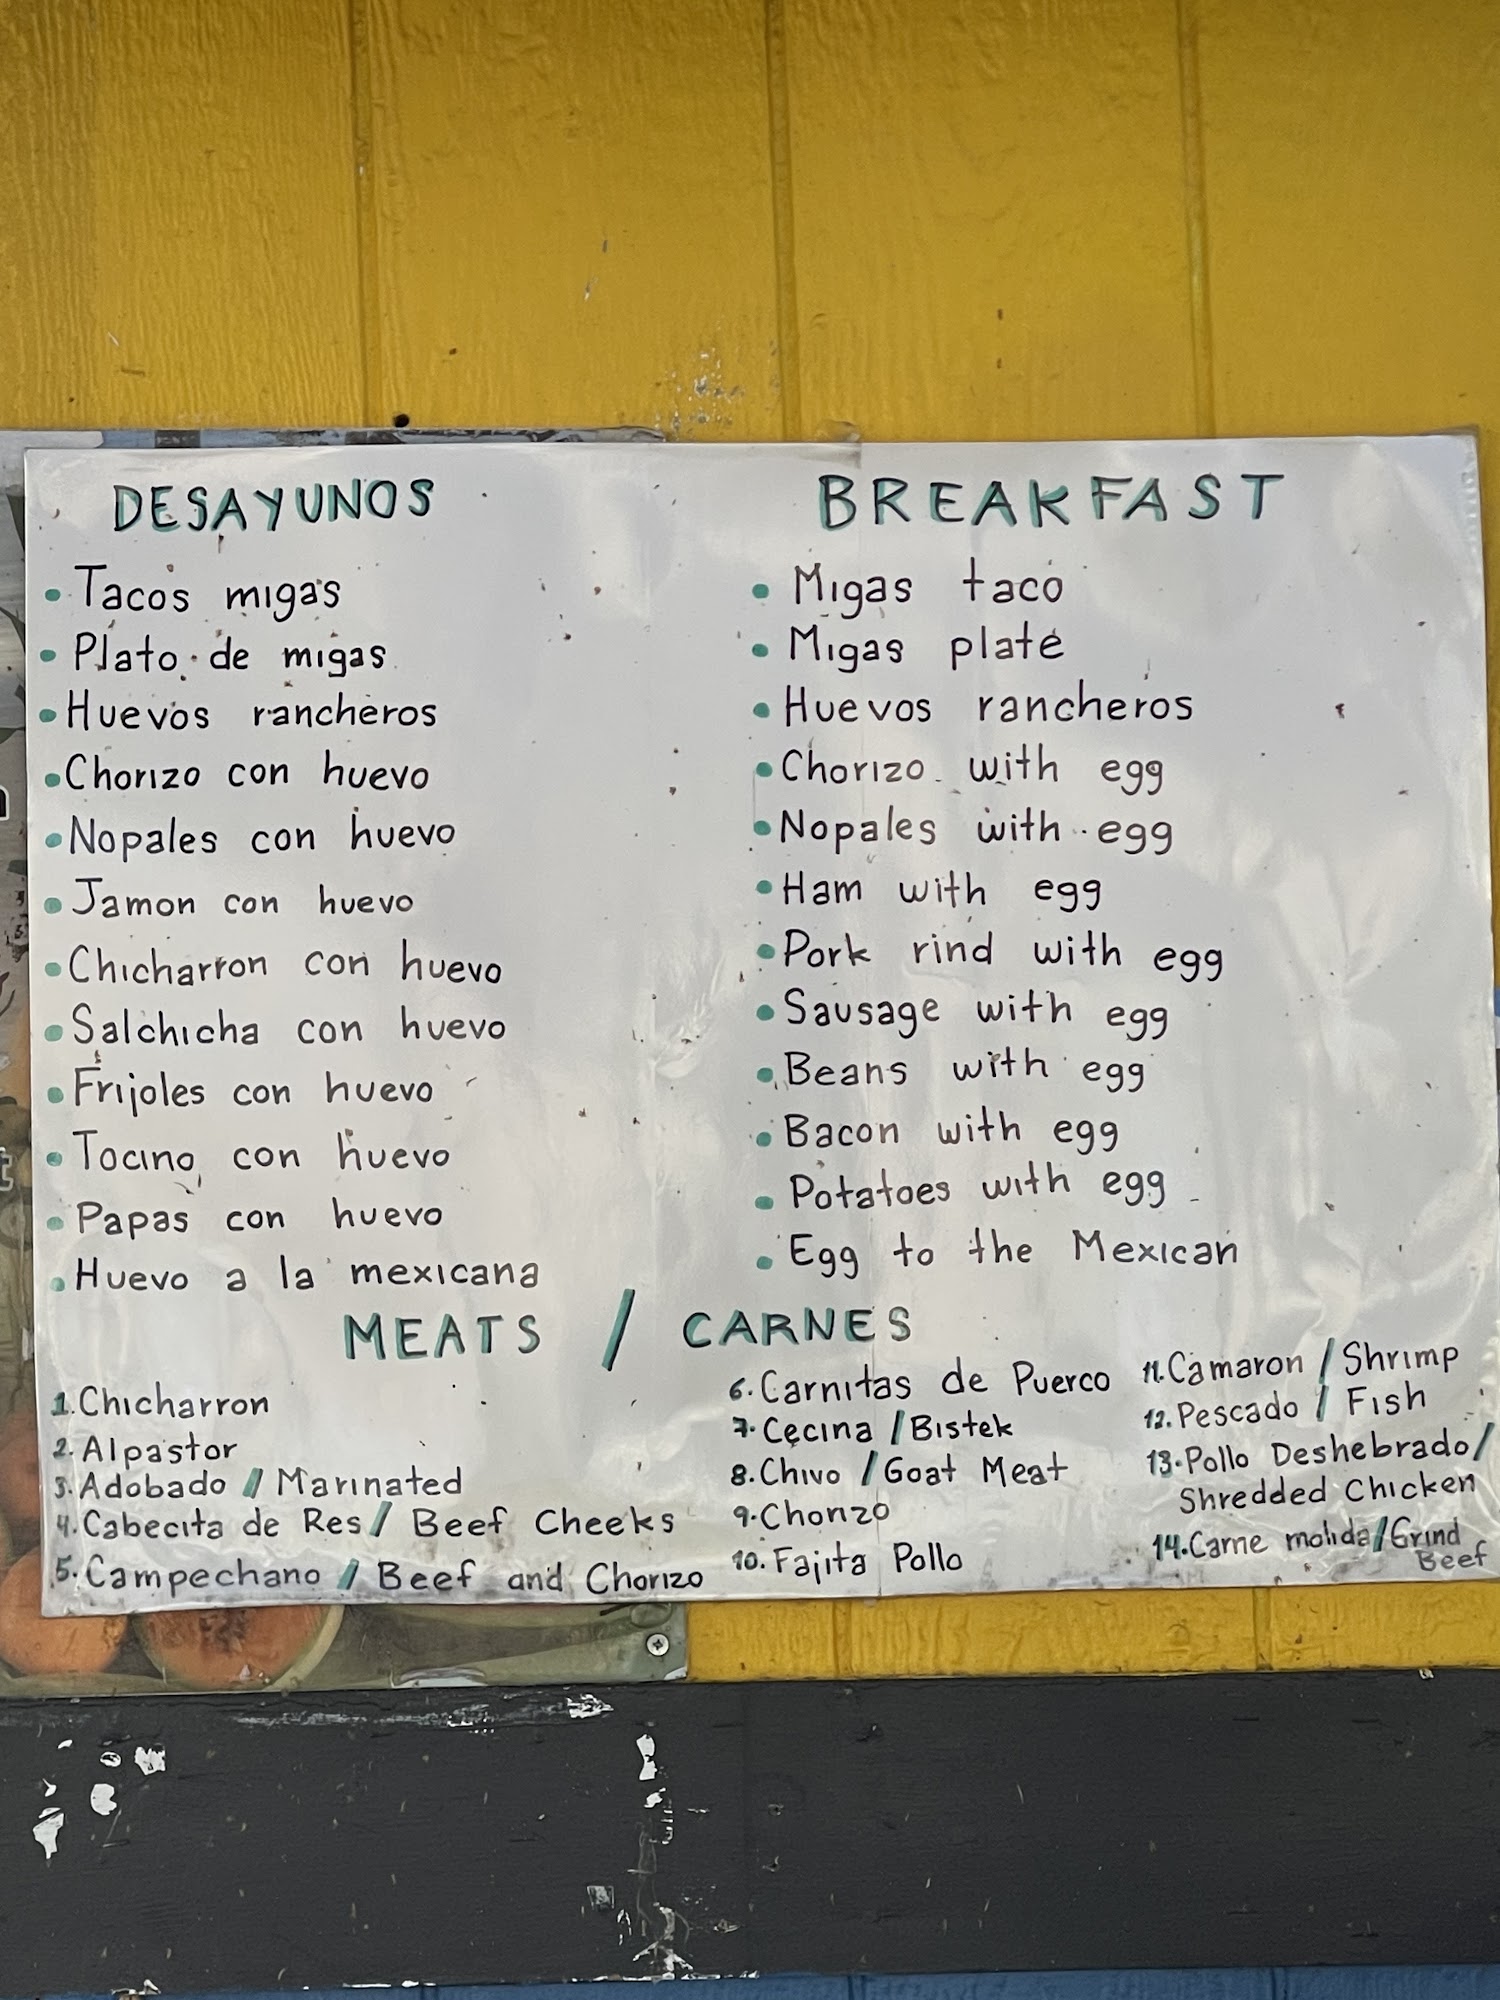 DESAYUNOS
• Tacos migas
• Plato de migas
• Huevos rancheros
• Chorizo con huevo
• Nopales con huevo
• Jamon con huevo
• Chicharron con huevo
• Salchicha con huevo
• Frijoles con huevo
• Tocino con huevo
• Papas con huevo
• Huevo a la mexicana
BREAKFAST
• Migas taco
• Migas plate
• Huevos rancheros
• Chorizo with egg
• Nopales with egg
• Ham with egg
• Pork rind with egg
• Sausage with egg
• Beans with egg
• Bacon with egg
• Potatoes with egg
• Egg to the Mexican
MEATS / CARNES
1. Chicharron
2. Alpastor
3. Adobado / Marinated
4. Cabecita de Res / Beef Cheeks
5. Campechano / Beef and Chorizo
6. Carnitas de Puerco
7. Cecina / Bistek
8. Chivo / Goat Meat
9. Chorizo
10. Fajita Pollo
11. Camaron / Shrimp
12. Pescado / Fish
13. Pollo Deshebrado /
Shredded Chicken
14. Carne molida / Grind
Beef